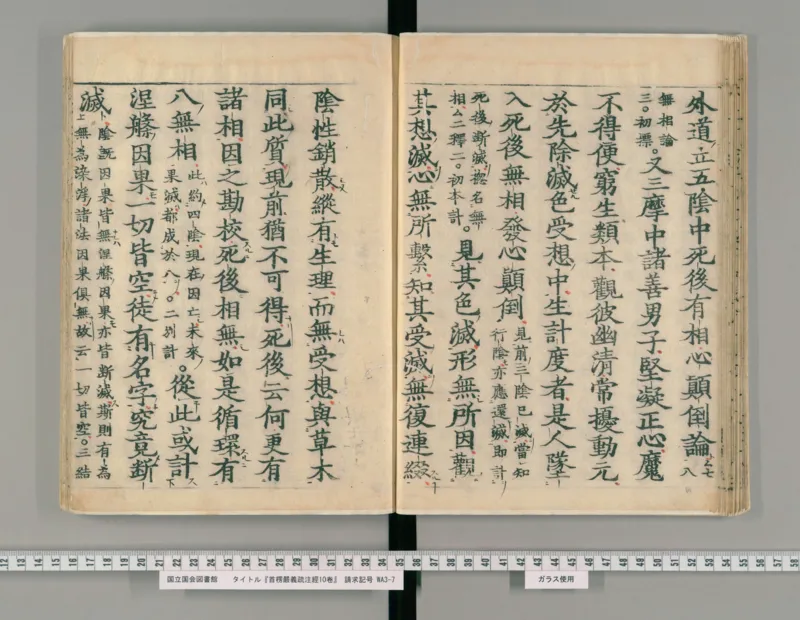 外道立五陰中死後有相心顛倒論 七 八
無相論
三。初標。又三摩中諸善男子堅凝正心魔
不得便窮生類本觀彼幽清常擾動元
於先除滅色受想中生計度者是人墜
入死後無相發心顛倒 見前三陰已滅當知
行陰亦應還滅即計
死後斷滅揔名無
相△二釋二。初本計。見其色滅形無所因觀
其想滅心無所繫知其受滅無復連綴
陰性銷散縱有生理而無受想與草木
同此質現前猶不可得死後云何更有
諸相因之勘校死後相無如是循環有
八無相 此約四陰現在因亡未來
果滅都成於八。二別計。從此或計
涅槃因果一切皆空徒有名字究竟斷
滅 陰既因果皆無涅槃因果亦皆斷滅斯則有為
無為染淨諸法因果俱無故云一切皆空。三結
12 13 14 15 16 17 18 19 20 21 22 23 24 25 26 27 28 29 30 31 32 33 34 35 36 37 38 39 40 41 42 43 44 45 46 47 48 49 50 51 52 53 54 55 56 57 58 59 60 61 62
国立国会図書館 タイトル『首楞嚴義疏注經10巻』 請求記号 WA3-7
ガラス使用